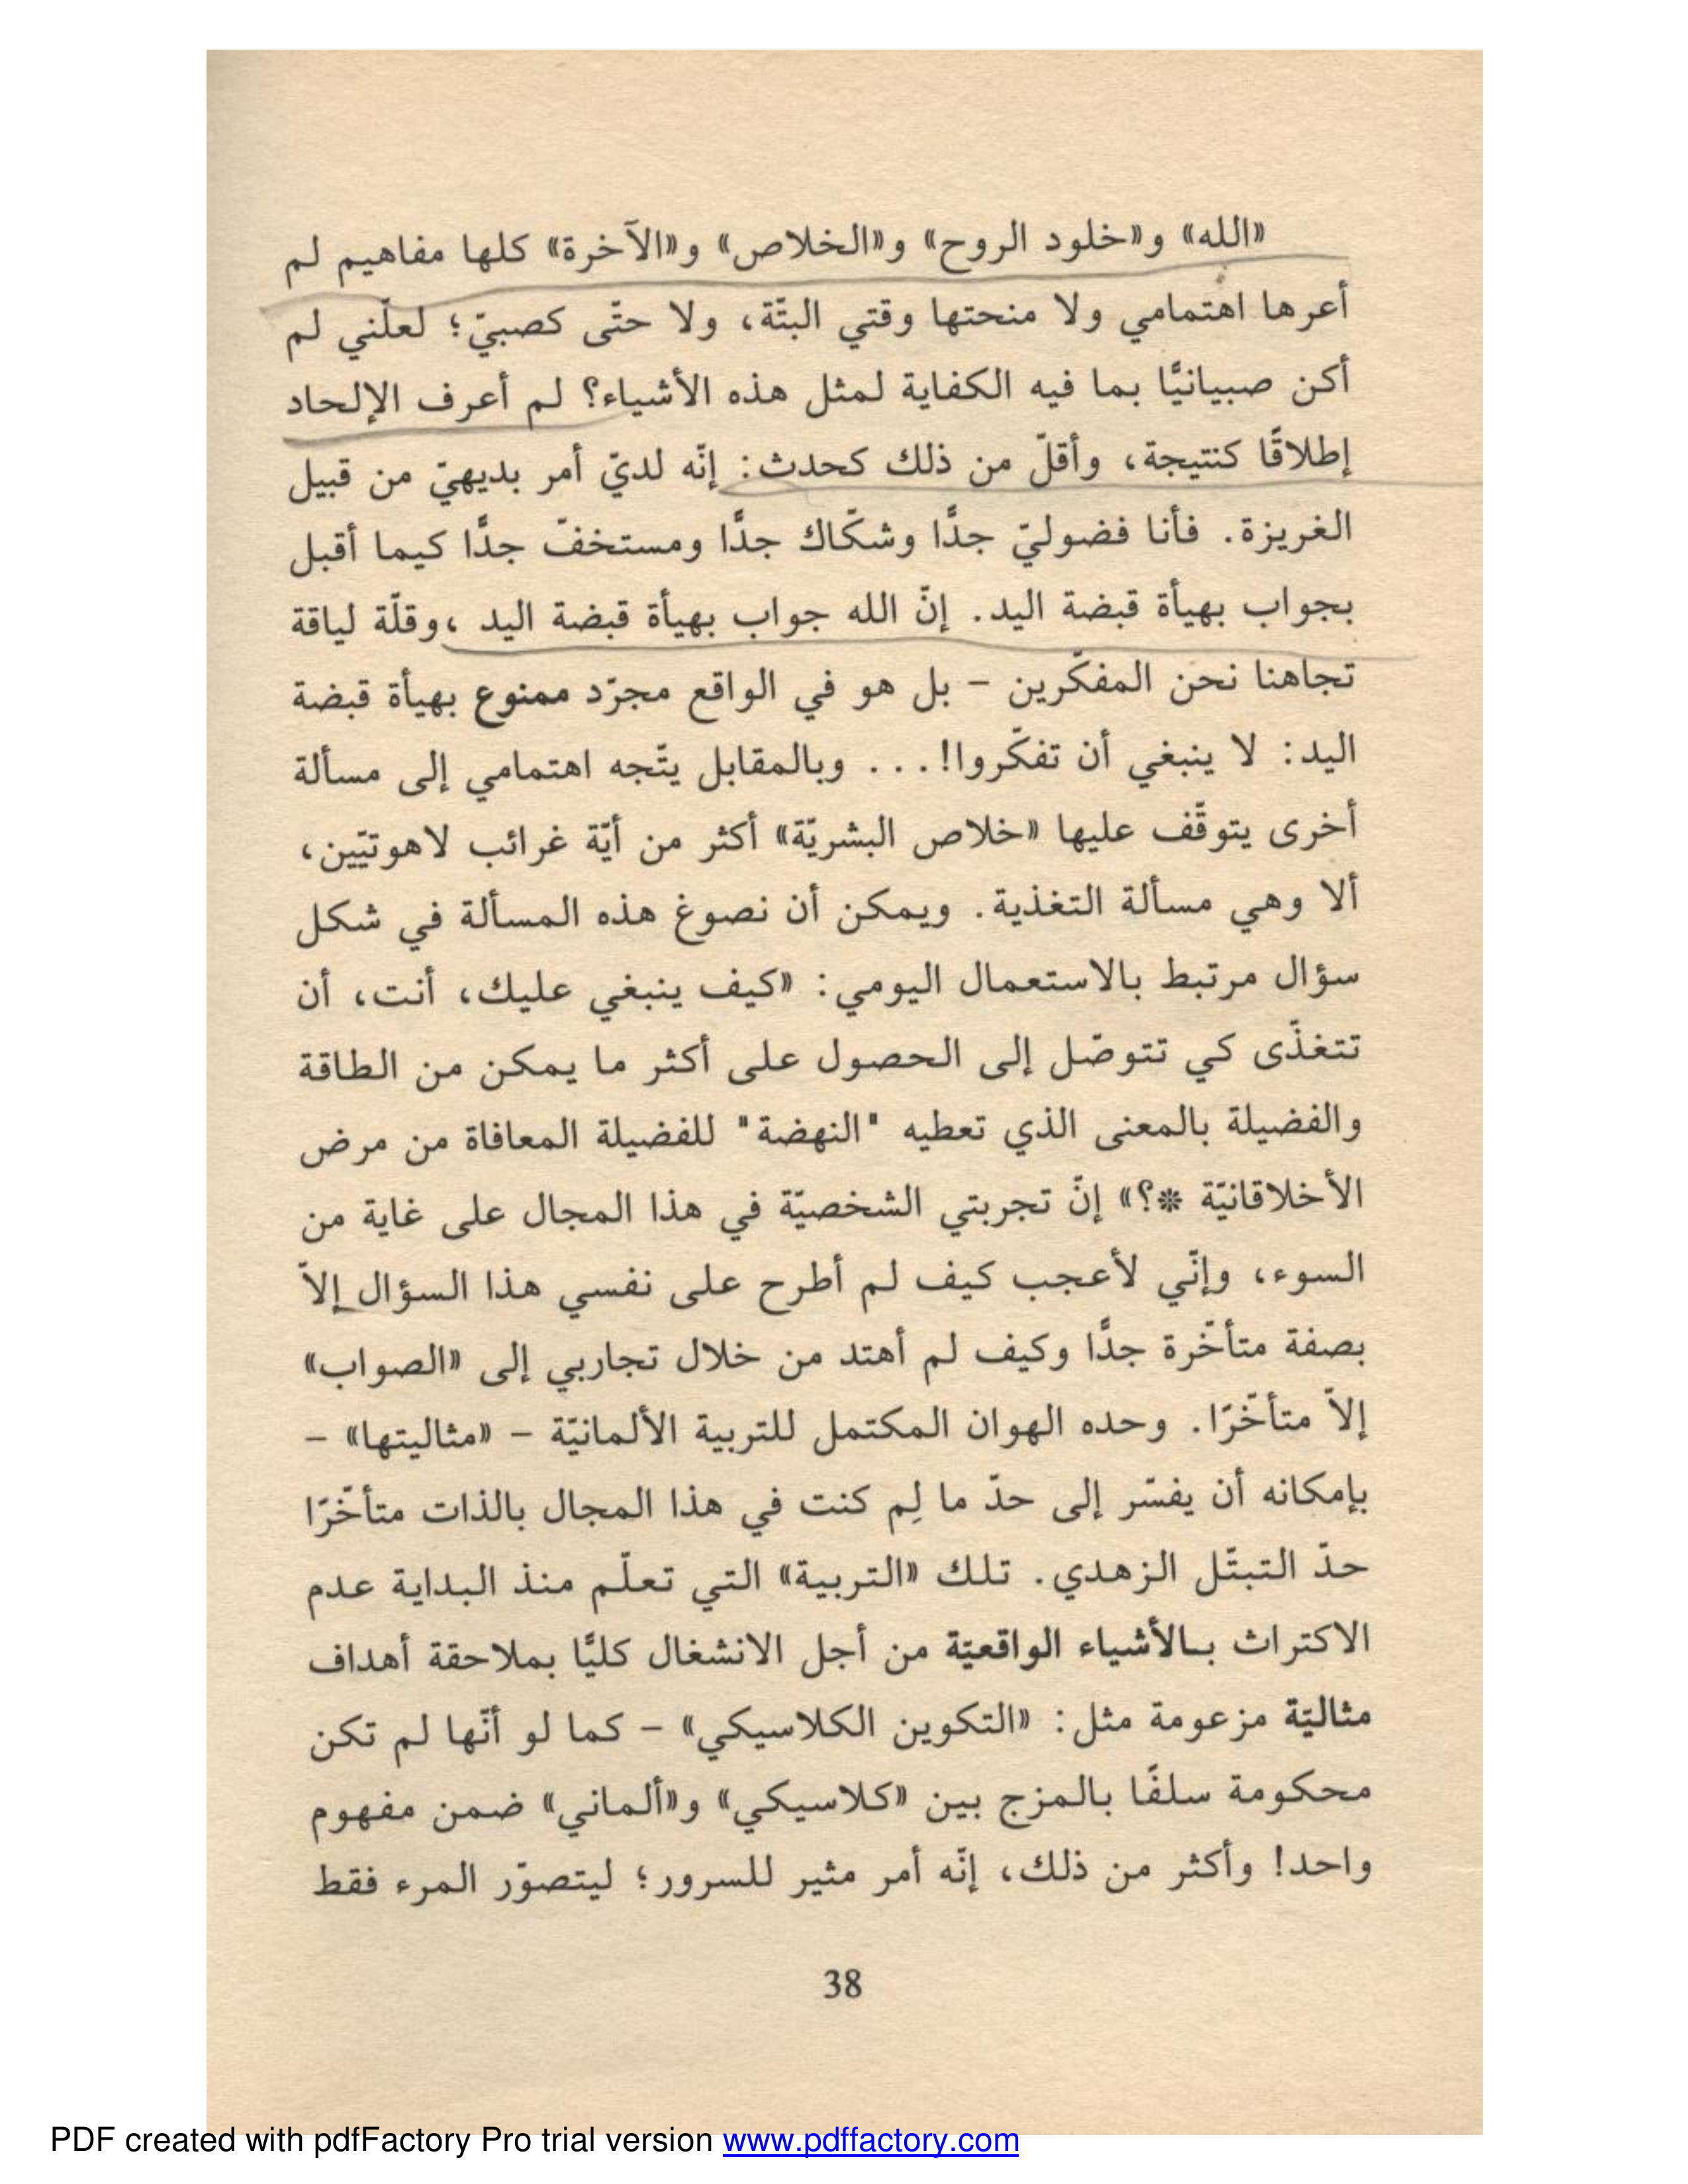 «الله» و«خلود الروح» و«الخلاص» و«الآخرة» كلها مفاهيم لم
أعرها اهتمامي ولا منحتها وقتي البتّة، ولا حتّى كصبيّ؛ لعلّني لم
أكن صبيانيًّا بما فيه الكفاية لمثل هذه الأشياء؟ لم أعرف الإلحاد
إطلاقًا كنتيجة، وأقلّ من ذلك كحدث: إنّه لديّ أمر بديهيّ من قبيل
الغريزة. فأنا فضوليّ جدًّا وشكّاك جدًّا ومستخفّ جدًّا كيما أقبل
بجواب بهيأة قبضة اليد. إنّ الله جواب بهيأة قبضة اليد ،وقلّة لياقة
تجاهنا نحن المفكّرين – بل هو في الواقع مجرّد ممنوع بهيأة قبضة
اليد: لا ينبغي أن تفكّروا!... وبالمقابل يتّجه اهتمامي إلى مسألة
أخرى يتوقّف عليها «خلاص البشريّة» أكثر من أيّة غرائب لاهوتيّين،
ألا وهي مسألة التغذية. ويمكن أن نصوغ هذه المسألة في شكل
سؤال مرتبط بالاستعمال اليومي: «كيف ينبغي عليك، أنت، أن
تتغذّى كي تتوصّل إلى الحصول على أكثر ما يمكن من الطاقة
والفضيلة بالمعنى الذي تعطيه "النهضة" للفضيلة المعافاة من مرض
الأخلاقانيّة *؟» إنّ تجربتي الشخصيّة في هذا المجال على غاية من
السوء، وإنّي لأعجب كيف لم أطرح على نفسي هذا السؤال إلاّ
بصفة متأخّرة جدًّا وكيف لم أهتد من خلال تجاربي إلى «الصواب»
إلاّ متأخّرًا. وحده الهوان المكتمل للتربية الألمانيّة – «مثاليتها» –
بإمكانه أن يفسّر إلى حدّ ما لِم كنت في هذا المجال بالذات متأخّرًا
حدّ التبتّل الزهدي. تلك «التربية» التي تعلّم منذ البداية عدم
الاكتراث بـالأشياء الواقعيّة من أجل الانشغال كليًّا بملاحقة أهداف
مثاليّة مزعومة مثل: «التكوين الكلاسيكي» – كما لو أنّها لم تكن
محكومة سلفًا بالمزج بين «كلاسيكي» و«ألماني» ضمن مفهوم
واحد! وأكثر من ذلك، إنّه أمر مثير للسرور؛ ليتصوّر المرء فقط
38
PDF created with pdfFactory Pro trial version www.pdffactory.com